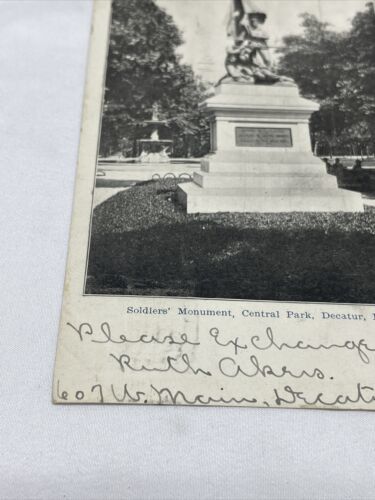 Soldiers' Monument, Central Park, Decatur,
Please Exchange
Ruth Akers.
607 W. Main, Decat